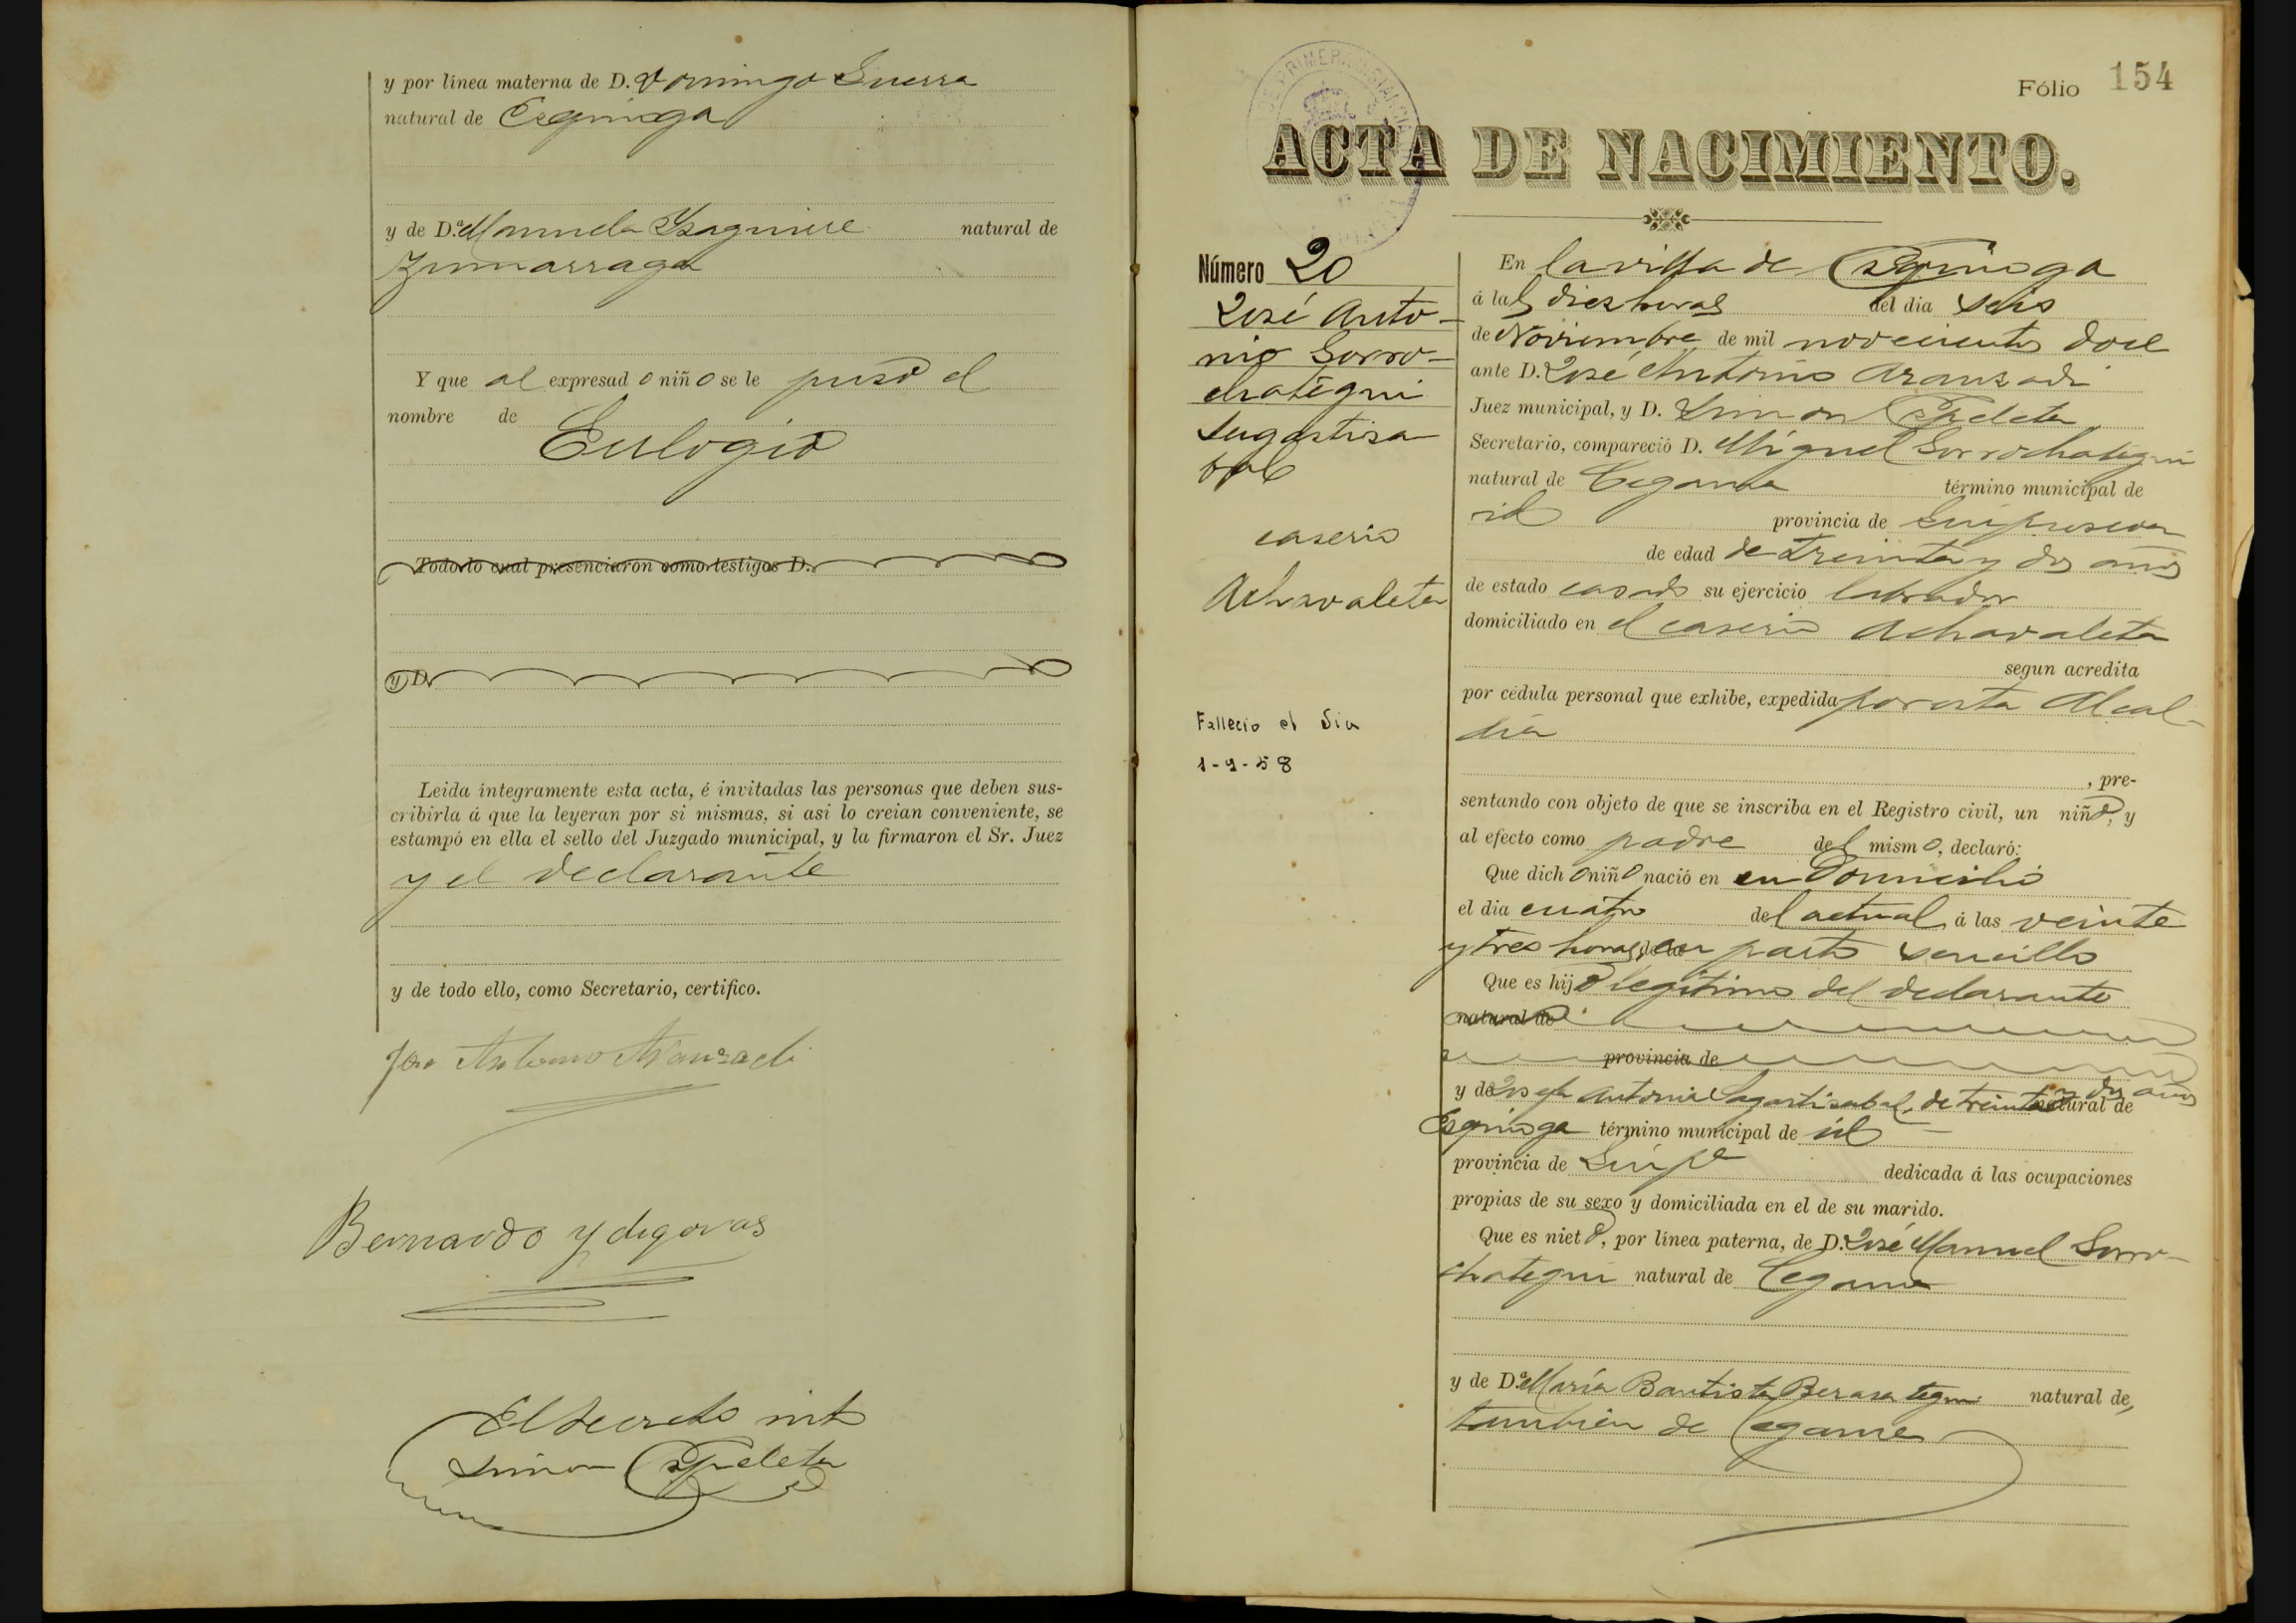 y por línea materna de D. Domingo Guerra
natural de Ezquioga
y de D.ª Manuela Yzaguirre natural de
Zumarraga
Y que al expresado niño se le puso el
nombre de
Eulogio
Todo lo cual presenciaron como testigos D.
y D.
Leida íntegramente esta acta, é invitadas las personas que deben sus-
cribirla á que la leyeran por si mismas, si asi lo creian conveniente, se
estampó en ella el sello del Juzgado municipal, y la firmaron el Sr. Juez
y el declarante
y de todo ello, como Secretario, certifico.
José Antonio Aranzadi
Bernardo Ydigoras
El Secreto int
Simon Ezpeleta
Fólio 154
ACTA DE NACIMIENTO.
Número 20
José Anto-
nio Gorro-
chategui
Lagartiza
bal
caserio
Acharaleta
Fallecio el dia
1-9-58
En la villa de Ezquioga
á las diez horas del dia seis
de Noviembre de mil novecientos doce
ante D. José Antonio Aranzadi
Juez municipal, y D. Simon Ezpeleta
Secretario, compareció D. Miguel Gorrochategui
natural de Cegama término municipal de
id provincia de Guipuzcoa
de edad de treinta y dos años
de estado casado su ejercicio labrador
domiciliado en el caserio Acharaleta
segun acredita
por cédula personal que exhibe, expedida por esta Alcal-
dia
, pre-
sentando con objeto de que se inscriba en el Registro civil, un niño, y
al efecto como padre del mismo, declaró:
Que dicho niño nació en su domicilio
el dia cuatro del actual á las veinte
y tres horas, en parto sencillo
Que es hijo legitimo del declarante
natural de
provincia de
y de Josefa Antonia Lagartizabal, de treinta y dos años natural de
Ezquioga término municipal de id
provincia de Guipª dedicada á las ocupaciones
propias de su sexo y domiciliada en el de su marido.
Que es nieto, por línea paterna, de D. José Manuel Gorro-
chategui natural de Cegama
y de D.ª María Bautista Berasategui natural de,
tambien de Cegama